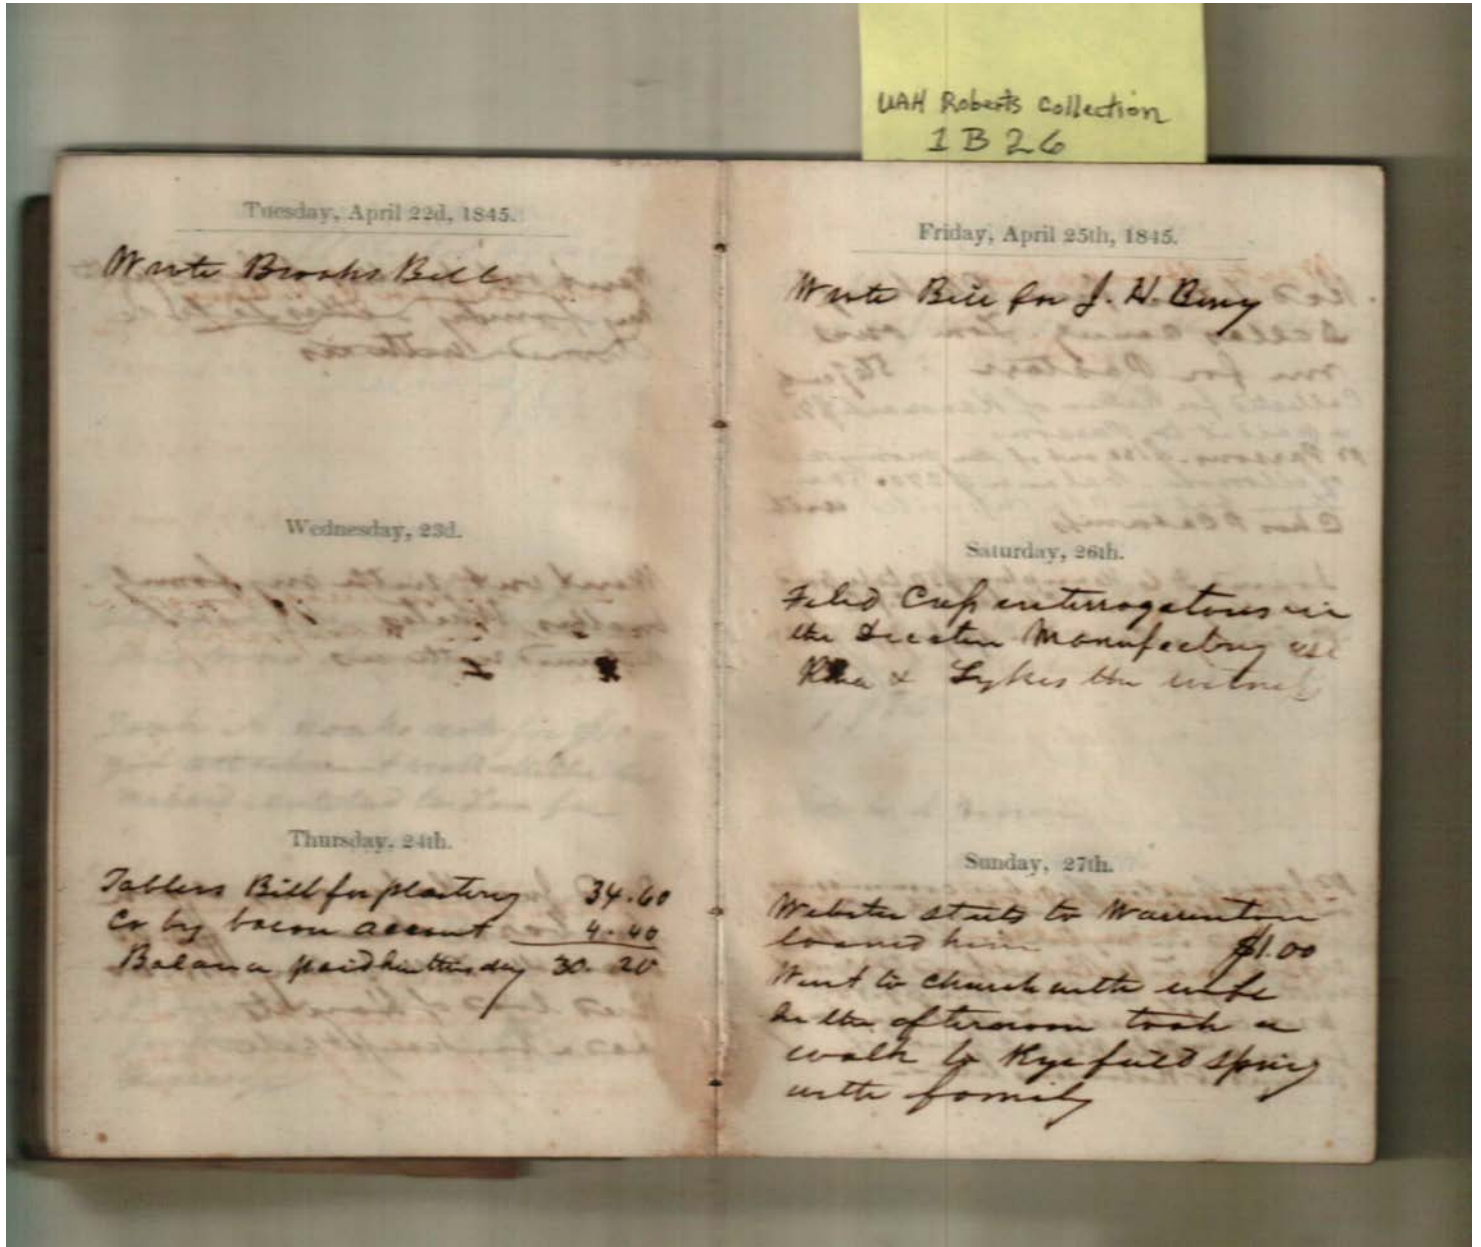 UAH Roberts Collection
1B26
Tuesday, April 22d, 1845.
Wrote Brooks Bill
Wednesday, 23d.
Thursday, 24th.
Tablers Bill for plastering 34.60
Cr by bacon account 4.40
Balance paid him this day 30.20
Friday, April 25th, 1845.
Wrote Bill for J. H.
Saturday, 26th.
Filed Cross interrogatories in
the Decatur Manufactory
Rhea & Sykes the witness
Sunday, 27th.
Webster starts to Warrenton
loaned him $1.00
Went to church with wife
In the afternoon took a
walk to Ryefield spring
with family